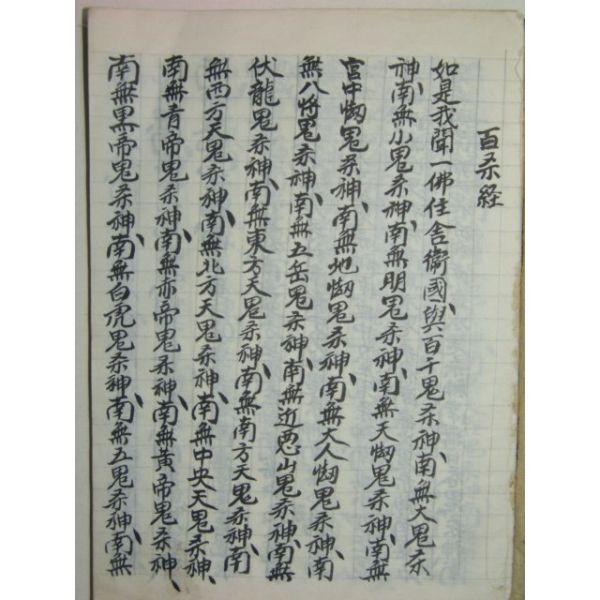 百杀経
如是我聞一佛住舎衛國與百千鬼杀神南無大鬼杀
神南無小鬼杀神南無明鬼杀神南無天㑃鬼杀神南無
宮中㑃鬼杀神南無地㑃鬼杀神南無大人㑃鬼杀神南
無八將鬼杀神南無五岳鬼杀神南無近悪山鬼杀神南無
伏龍鬼杀神南無東方天鬼杀神南無南方天鬼杀神南
無西方天鬼杀神南無北方天鬼杀神南無中央天鬼杀神
南無青帝鬼杀神南無赤帝鬼杀神南無黃帝鬼杀神
南無黒帝鬼杀神南無白虎鬼杀神南無五鬼杀神南無